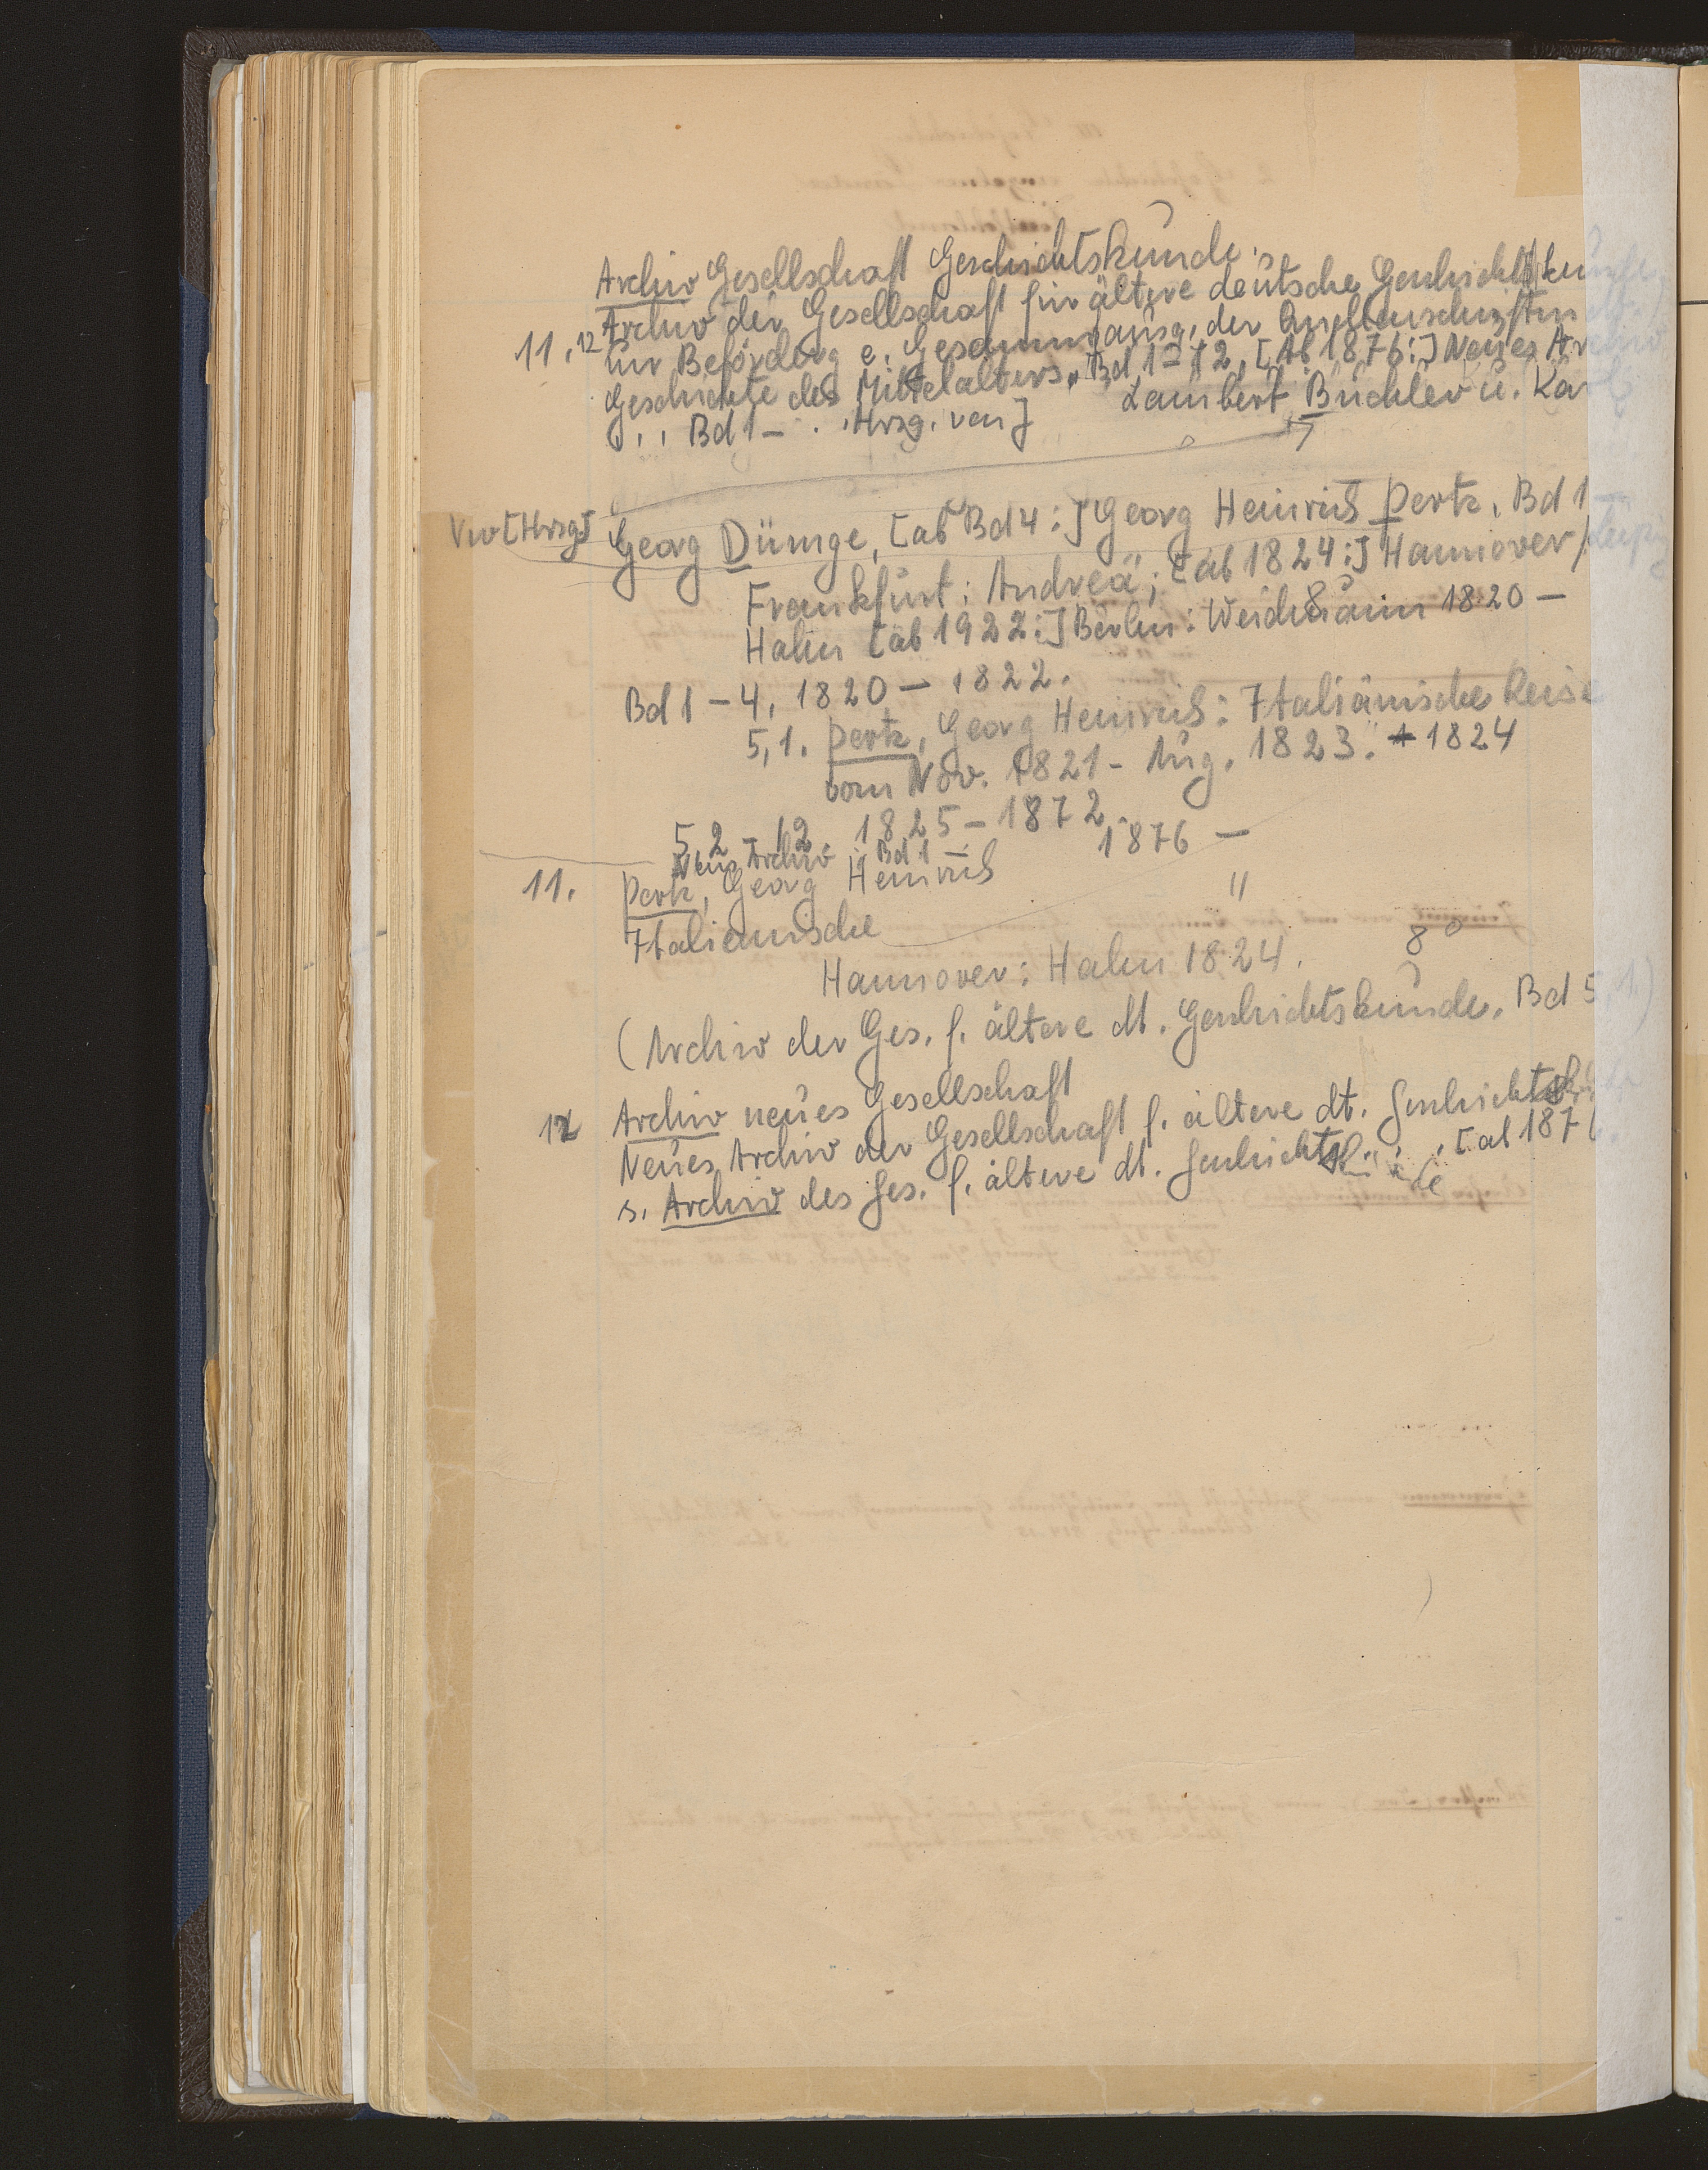 Archiv Gesellschaft Geschichtskunde
Archiv der Gesellschaft für ältere deutsche Geschichtskunde
11.,12 zur Beförderg e. Gesammtausg. der Quellenschriften dt.
Geschichte des Mittelalters. Bd 1-12, [Ab 1876:] Neues Archiv
... Bd 1 - . . Hrsg. von] Lambert Büchler u. Karl
Vw [Hrsg] Georg Dümge, [ab Bd 4:] Georg Heinrich Pertz. Bd 1 -
Frankfurt: Andreä; [ab 1824:] Hannover/Leipzig
Hahn [ab 1922:] Berlin: Weidmann 1820 -
Bd 1 - 4, 1820 - 1822.
5,1. Pertz, Georg Heinrich: Italiänische Reise
vom Nov. 1821 - Aug. 1823. 1824
5,2 - 12. 1825 - 1872
Neues Archiv Bd 1 - 1876 -
11. Pertz, Georg Heinrich "
Italienische
Hannover: Hahn 1824. 8°
(Archiv der Ges. f. ältere dt. Geschichtskunde. Bd 5,1.)
12 Archiv neues Gesellschaft
Neues Archiv der Gesellschaft f. ältere dt. Geschichtskunde
s. Archiv des Ges. f. ältere dt. Geschichtskunde, [ab 1876.